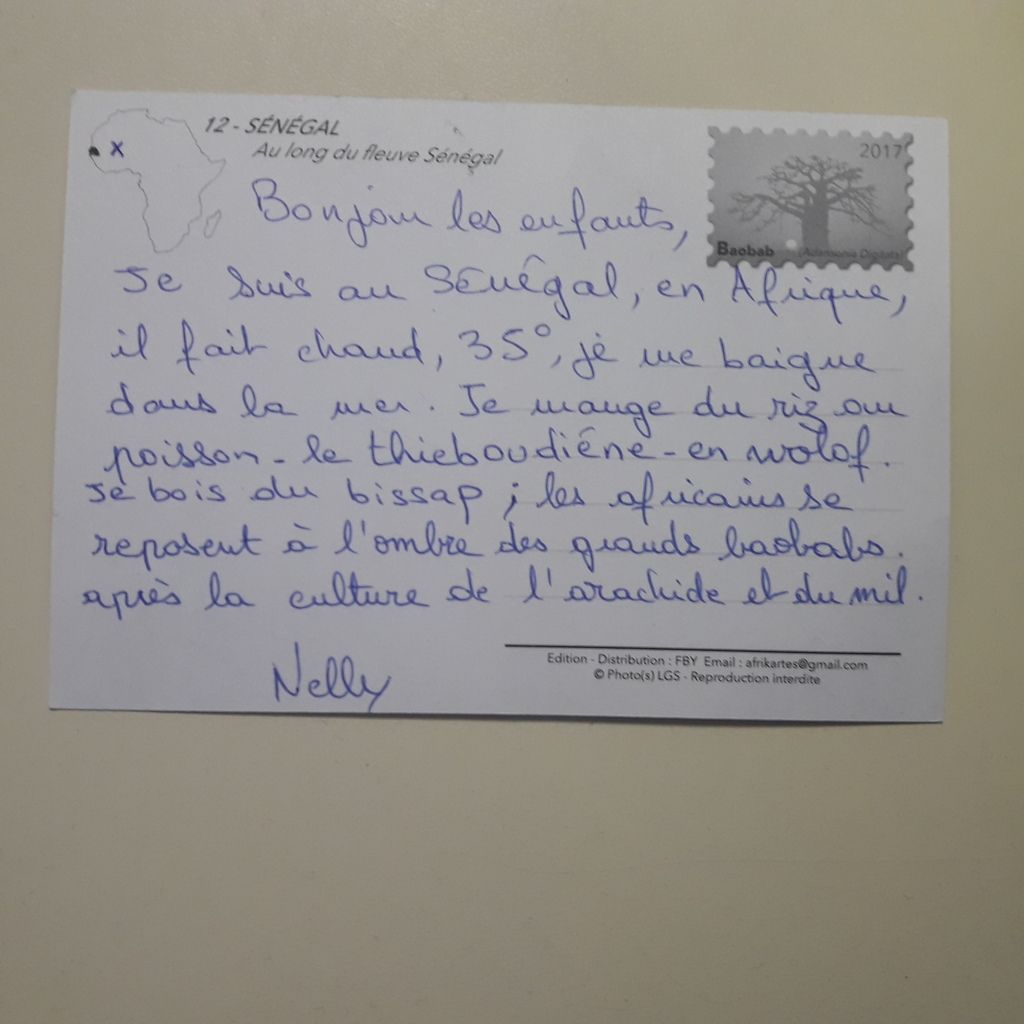 12 - SÉNÉGAL
Au long du fleuve Sénégal
x
2017
Baobab (Adansonia Digitata)
Bonjour les enfants,
Je suis au Sénégal, en Afrique,
il fait chaud, 35°, je me baigne
dans la mer. Je mange du riz au
poisson - le thieboudiéne - en wolof.
Je bois du bissap ; les africains se
reposent à l'ombre des grands baobabs.
après la culture de l'arachide et du mil.
Nelly
Edition - Distribution : FBY Email : afrikartes@gmail.com
© Photo(s) LGS - Reproduction interdite